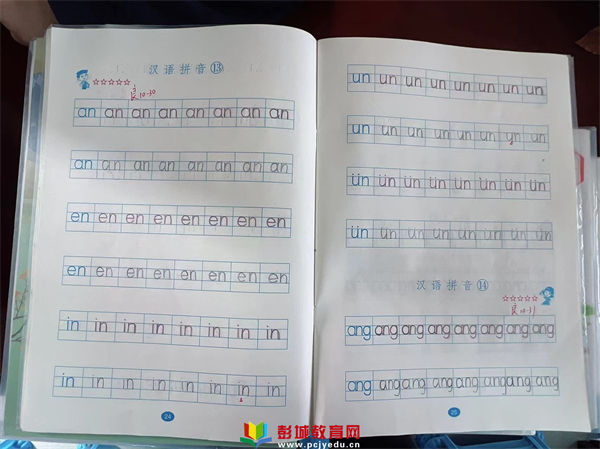 汉语拼音⑬
☆☆☆☆☆
良10-30
an an an an an an an an
an an an an an an an an
en en en en en en en en
en en en en en en en en
in in in in in in in in
in in in in in in in in
24
un un un un un un un un
un un un un un un un un
ün ün ün ün ün ün ün ün
ün ün ün ün ün ün ün ün
汉语拼音⑭
☆☆☆☆☆
良10-31
ang ang ang ang ang ang ang ang
ang ang ang ang ang ang ang ang
25
彭城教育网
www.pcjyedu.cn